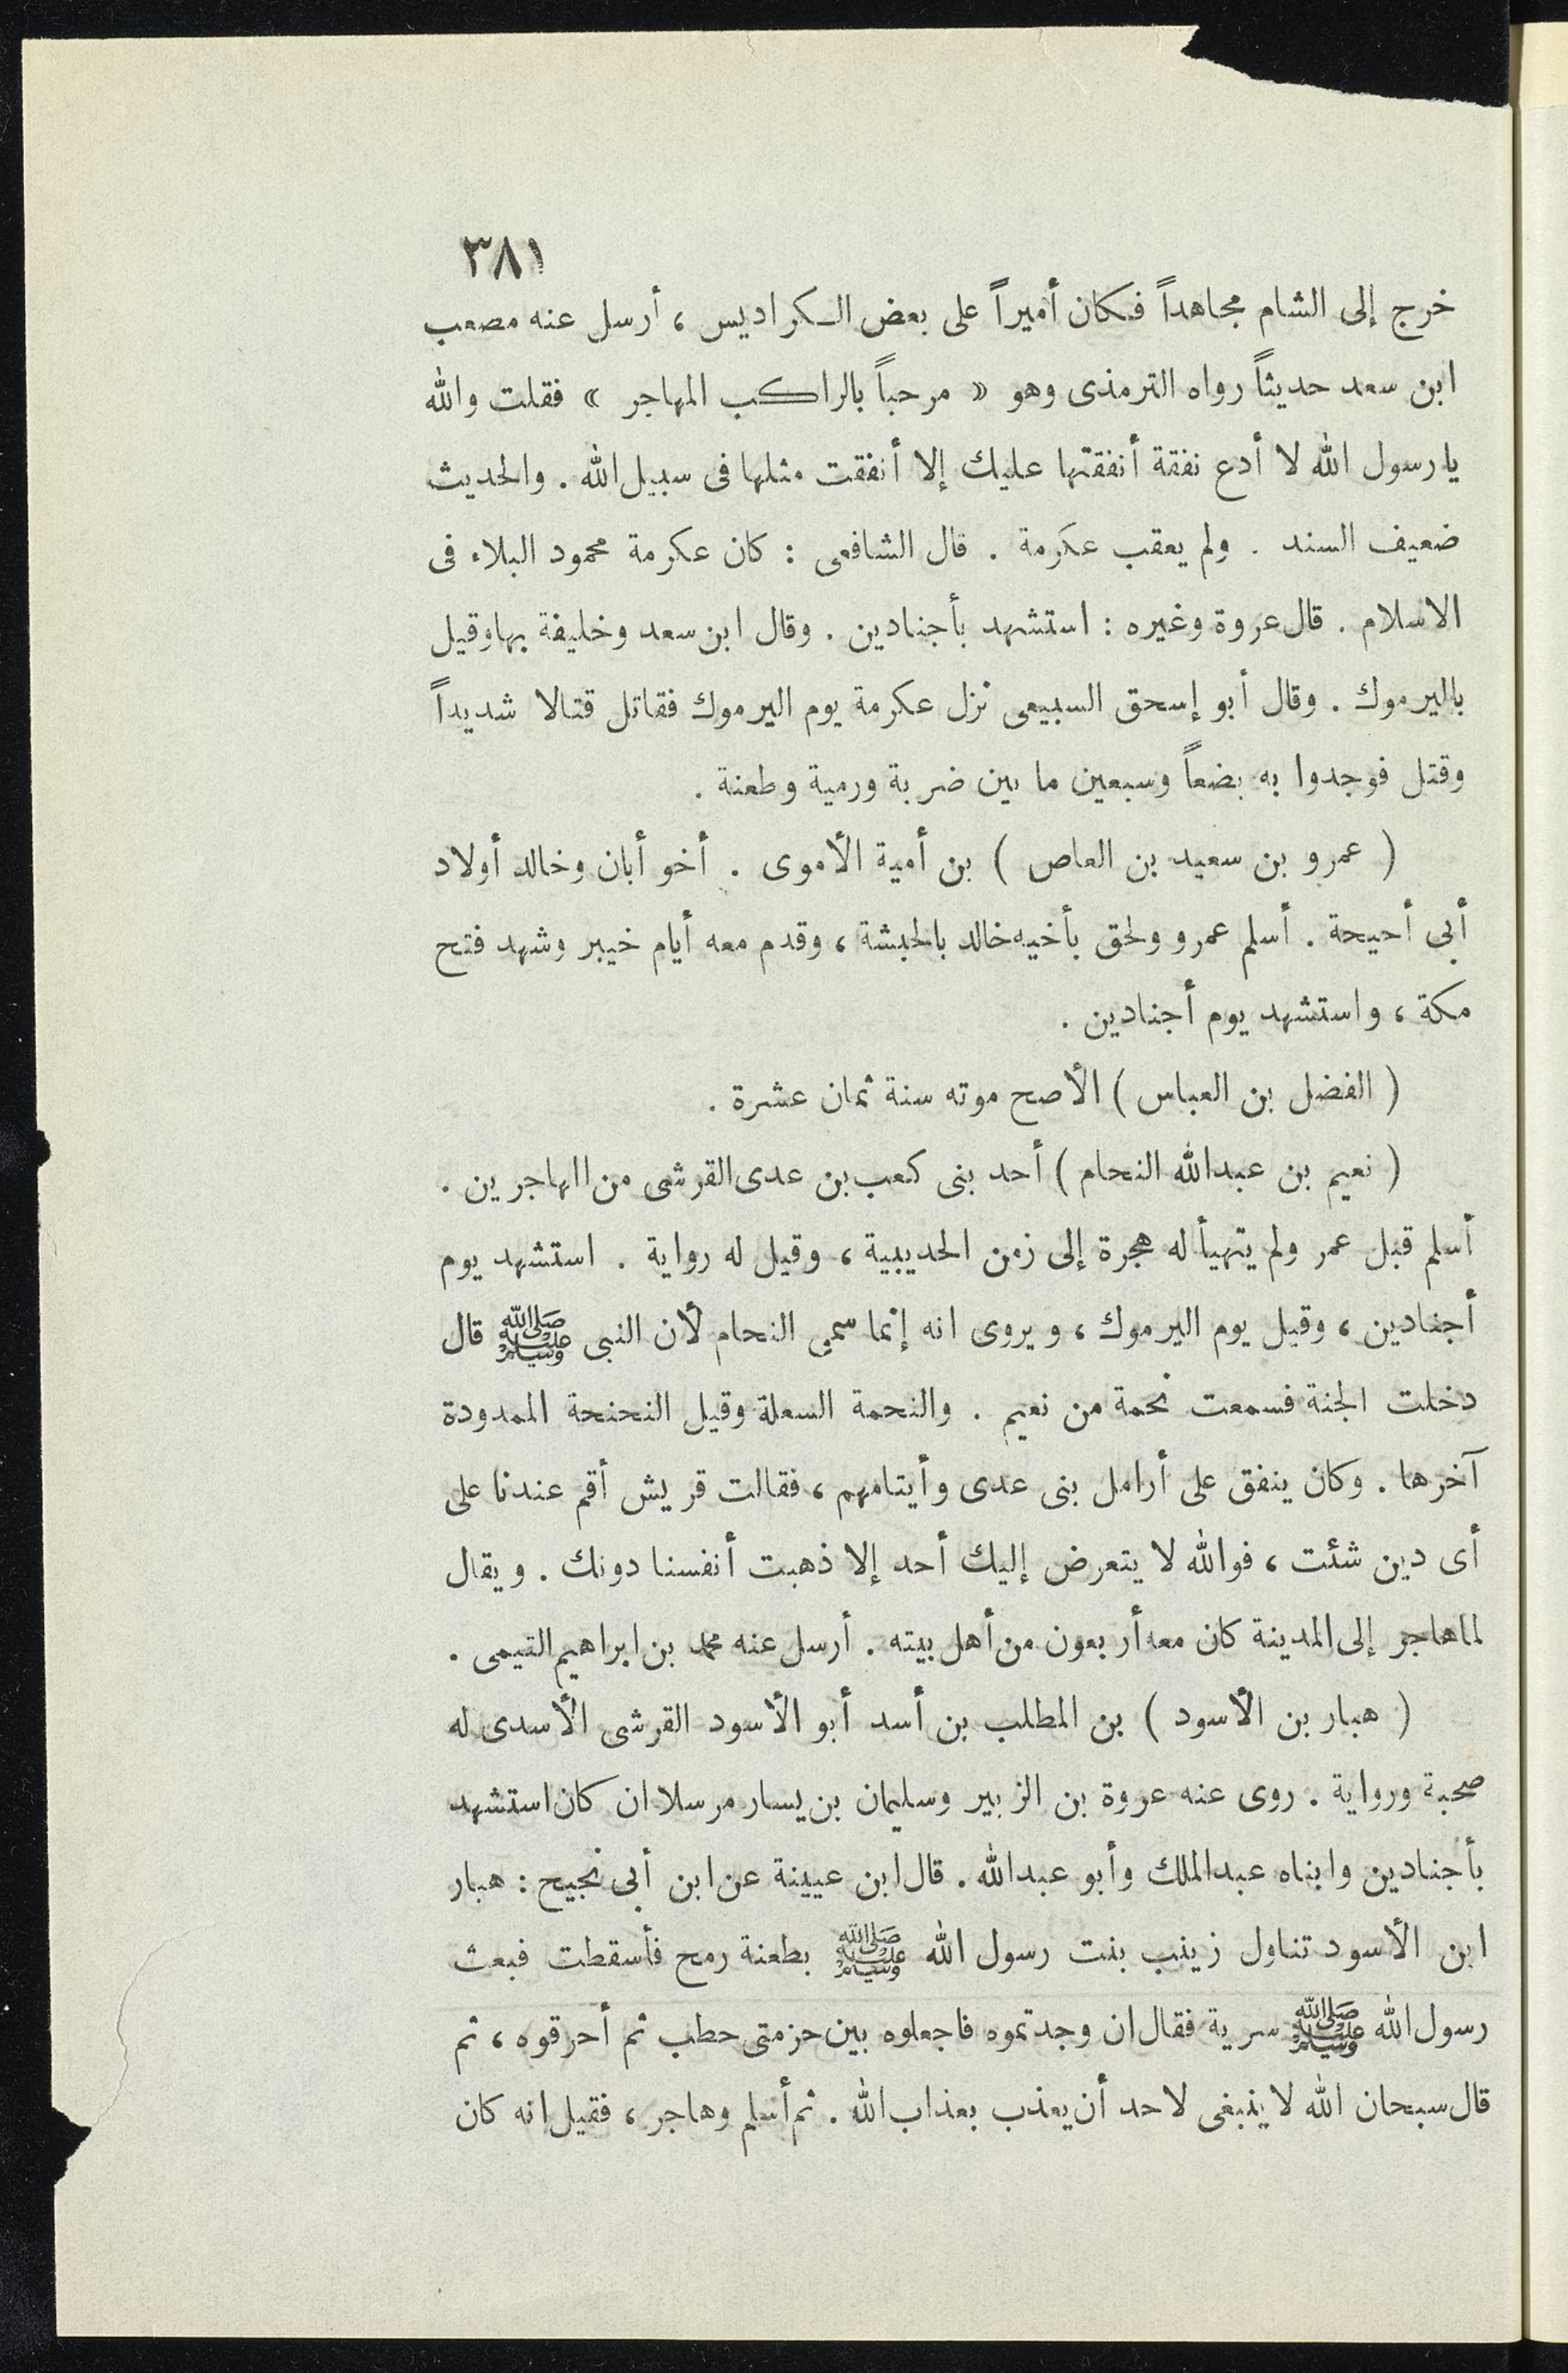 ٣٨١
خرج إلى الشام مجاهداً فكان أميراً على بعض الكراديس ، أرسل عنه مصعب
ابن سعد حديثاً رواه الترمذى وهو « مرحباً بالراكب المهاجر » فقلت والله
يا رسول الله لا أدع نفقة أنفقتها عليك إلا أنفقت مثلها فى سبيل الله . والحديث
ضعيف السند . ولم يعقب عكرمة . قال الشافعى : كان عكرمة محمود البلاء فى
الاسلام . قال عروة وغيره : استشهد بأجنادين . وقال ابن سعد وخليفة بها وقيل
باليرموك . وقال أبو إسحق السبيعى نزل عكرمة يوم اليرموك فقاتل قتالا شديداً
وقتل فوجدوا به بضعاً وسبعين ما بين ضربة ورمية وطعنة .
( عمرو بن سعيد بن العاص ) بن أمية الأموى . أخو أبان وخالد أولاد
أبى أحيحة . أسلم عمرو ولحق بأخيه خالد بالحبشة ، وقدم معه أيام خيبر وشهد فتح
مكة ، واستشهد يوم أجنادين .
( الفضل بن العباس ) الأصح موته سنة ثمان عشرة .
( نعيم بن عبدالله النحام ) أحد بنى كعب بن عدى القرشى من المهاجرين .
أسلم قبل عمر ولم يتهيأ له هجرة إلى زمن الحديبية ، وقيل له رواية . استشهد يوم
أجنادين ، وقيل يوم اليرموك ، ويروى انه إنما سمى النحام لأن النبى ﷺ قال
دخلت الجنة فسمعت نحمة من نعيم . والنحمة السعلة وقيل النحنحة الممدودة
آخرها . وكان ينفق على أرامل بنى عدى وأيتامهم ، فقالت قريش أقم عندنا على
أى دين شئت ، فوالله لا يتعرض إليك أحد إلا ذهبت أنفسنا دونك . ويقال
لما هاجر إلى المدينة كان معه أربعون من أهل بيته . أرسل عنه محمد بن ابراهيم التيمى .
( هبار بن الأسود ) بن المطلب بن أسد أبو الأسود القرشى الأسدى له
صحبة ورواية . روى عنه عروة بن الزبير وسليمان بن يسار مرسلا ان كان استشهد
بأجنادين وابناه عبدالملك وأبو عبدالله . قال ابن عيينة عن ابن أبى نجيح : هبار
ابن الأسود تناول زينب بنت رسول الله ﷺ بطعنة رمح فأسقطت فبعث
رسول الله ﷺ سرية فقال ان وجدتموه فاجعلوه بين حزمتى حطب ثم أحرقوه ، ثم
قال سبحان الله لا ينبغى لاحد أن يعذب بعذاب الله . ثم أسلم وهاجر ، فقيل انه كان